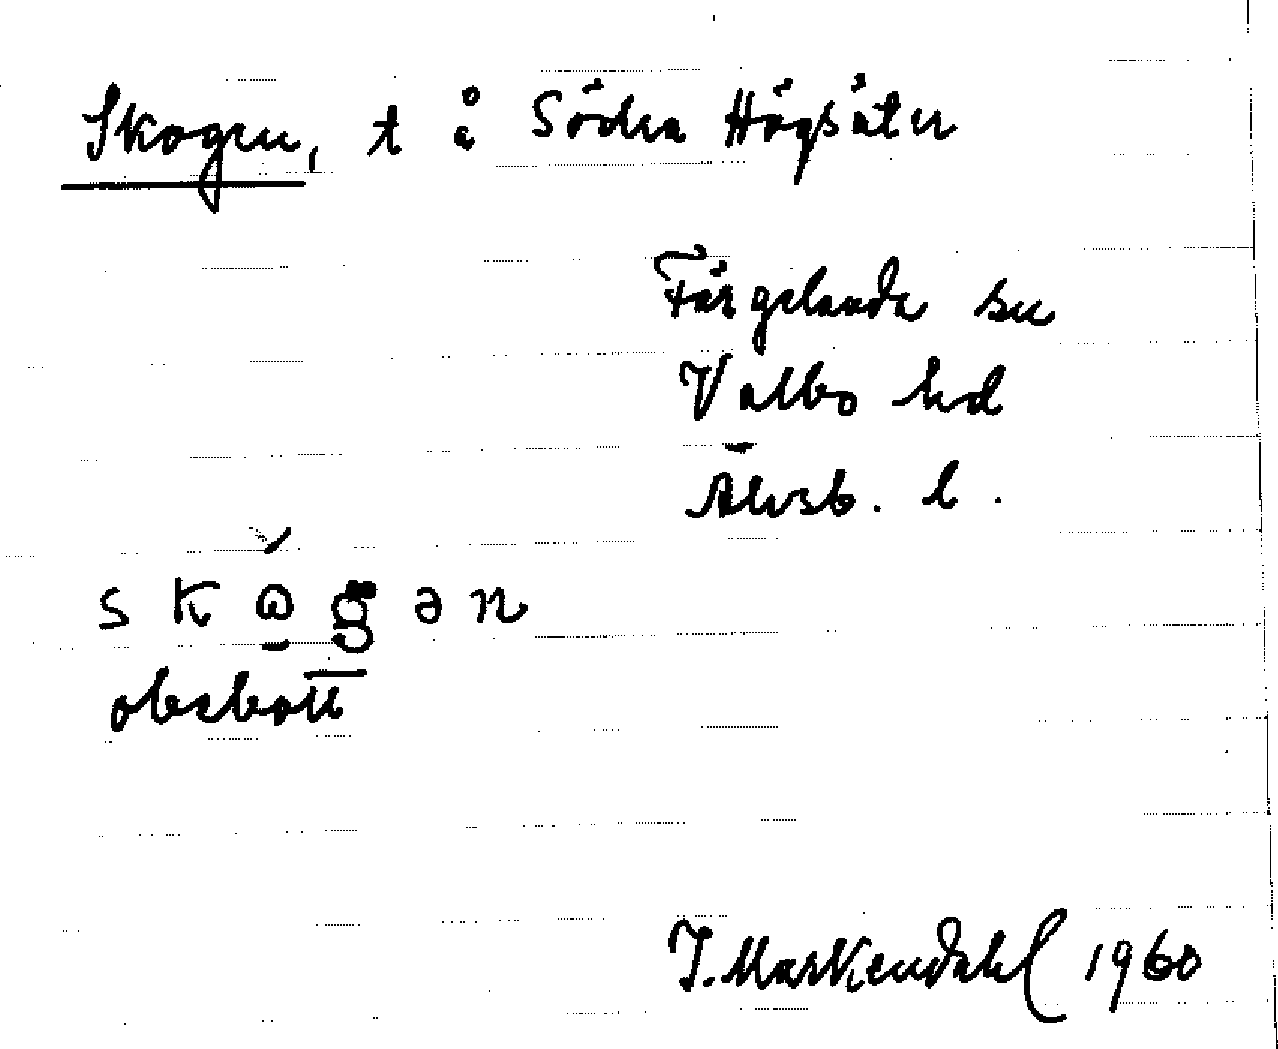 Skogen, t å Södra Högsäter
Färgelanda sn
Valbo hd
Älvsb. l.
skɷ̠̀gən
obebott
J. Markendahl 1960